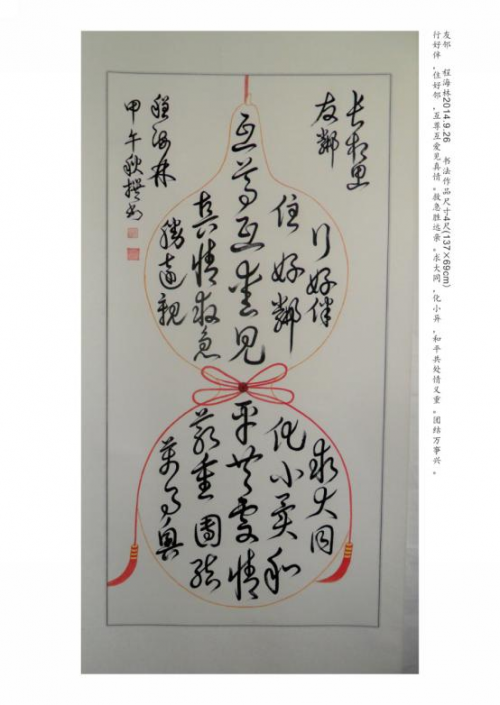 友邻 程海林2014.9.26 书法作品尺寸4尺(137×69cm)
行好伴,住好邻,互尊互爱见真情。救急胜远亲。求大同,化小异,和平共处情义重。团结万事兴。
长相思
友鄰
行好伴
住好鄰
互尊互爱見
真情救急
勝遠親
求大同
化小異和
平共處情
義重團結
萬事興
程海林
甲午秋撰书